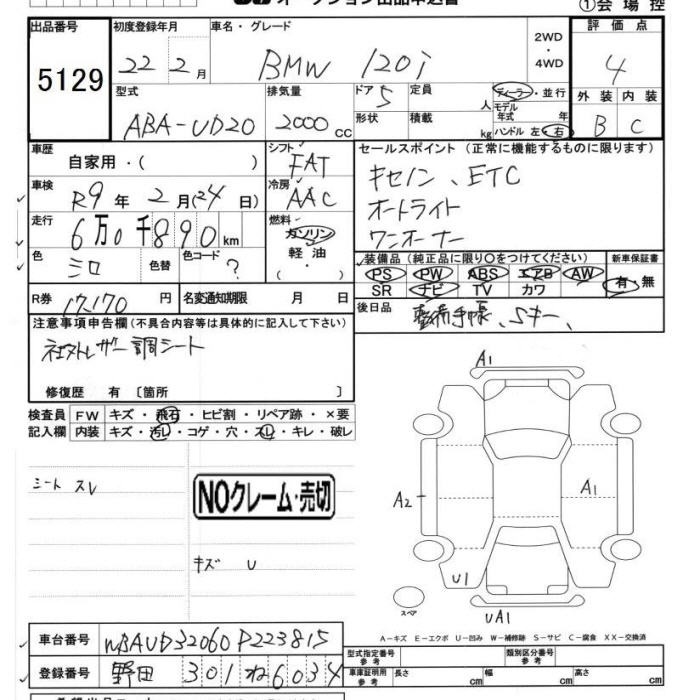 オークション出品申込書
①会場控
出品番号 初度登録年月 車名・グレード 2WD・4WD 評価点
5129 22 2月 BMW 120i 4
型式 排気量 ドア 5 定員 人 ディーラー・並行 外装 内装
ABA-UD20 2000cc 形状 積載 kg モデル年式 年 ハンドル 左・右 B C
車歴 自家用・( ) シフト FAT セールスポイント (正常に機能するものに限ります)
車検 R9年2月(24日) 冷房 AAC キセノン、ETC
走行 6万0千890km 燃料 ガソリン 軽油 ( ・ ) オートライト
ワンオーナー
色 シロ 色替 色コード ?
装備品 (純正品に限り○をつけてください) 新車保証書
PS PW ABS エアB AW 有・無
SR ナビ TV カワ
R券 17,170円 名変通知期限 月 日 後日品 整備手帳、Sキー、
注意事項申告欄(不具合内容等は具体的に記入して下さい)
社外レザー調シート
修復歴 有〔箇所 〕
検査員 FW キズ・飛石・ヒビ割・リペア跡・×要
記入欄 内装 キズ・汚レ・コゲ・穴・スレ・キレ・破レ
A1
シートスレ
NOクレーム・売切
A2 A1
キズ U
U1
スペア
UA1
A-キズ E-エクボ U-凹み W-補修跡 S-サビ C-腐食 XX-交換済
車台番号 WBAUD32060P223815 型式指定番号 参考 類別区分番号 参考
登録番号 野田 301 ね 6034 車庫証明用 参考 長さ cm 幅 cm 高さ cm